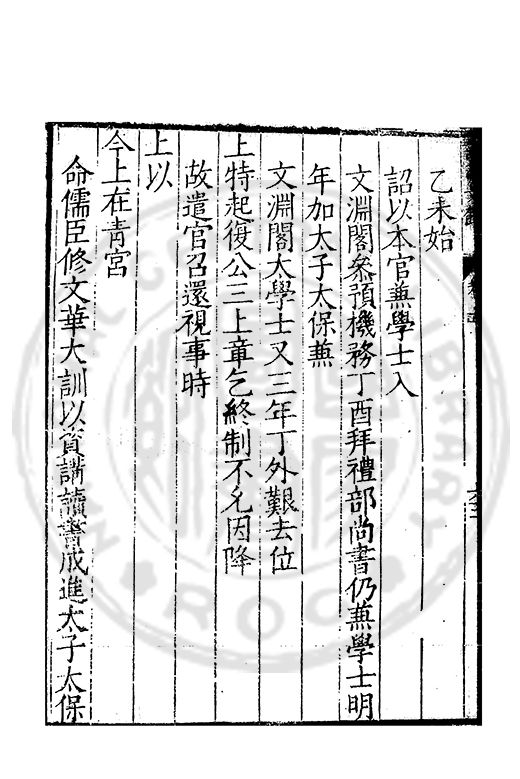 乙未始
詔以本官兼學士入
文淵閣叅預機務丁酉拜禮部尚書仍兼學士明
年加太子太保兼
文淵閣大學士又三年丁外艱去位
上特起復公三上章乞終制不允因降
敕遣官召還視事時
上以
今上在青宮
命儒臣修文華大訓以資講讀書成進太子太保